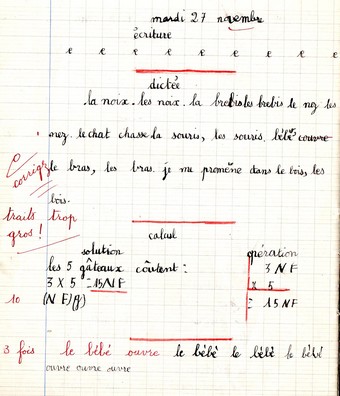 mardi 27 novembre
écriture
e e e e e e e e e
dictée
la noix. les noix. la brebis les brebis le nez les
nez. le chat chasse la souris, les souris. bébé couvre
corrige le bras, les bras. je me promène dans le bois, les
bois.
traits trop
gros !
calcul
solution opération
les 5 gâteaux coûtent : 3 NF
3 X 5 = 15 NF x 5
10 (N F) g = 15 NF
3 fois le bébé ouvre le bébé le bébé le bébé
ouvre ouvre ouvre